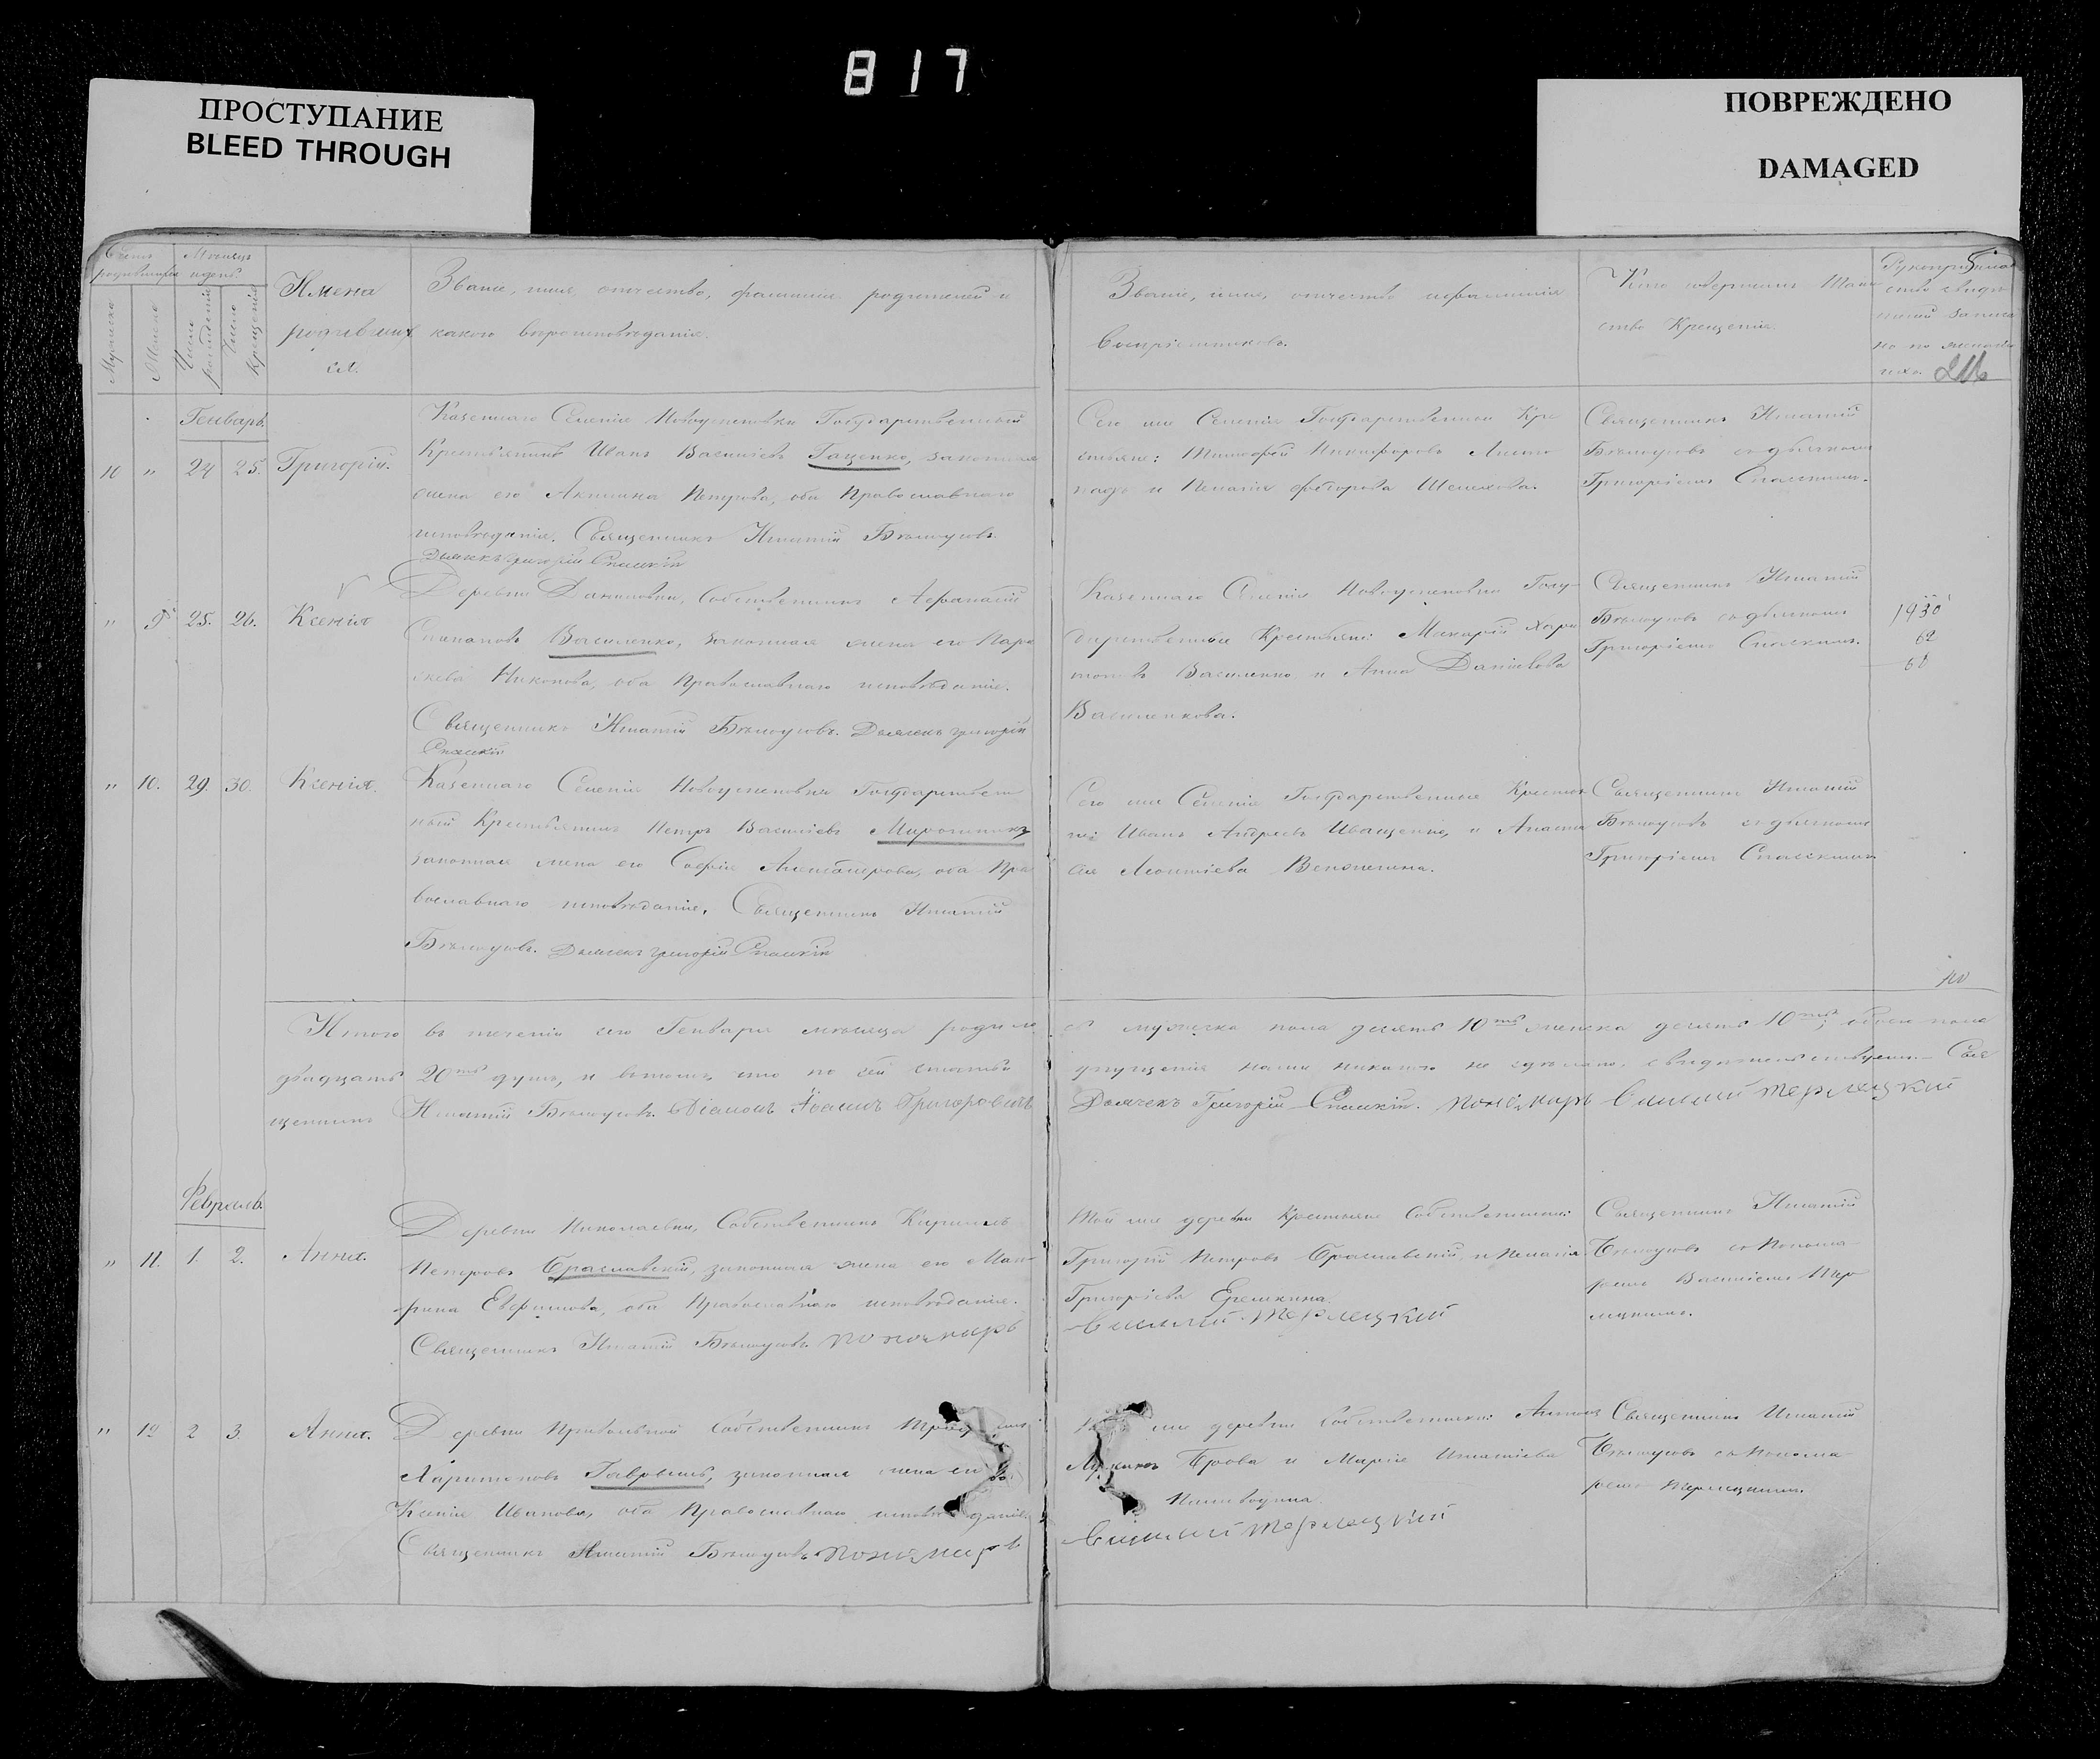 817
ПРОСТУПАНИЕ
BLEED THROUGH
ПОВРЕЖДЕНО
DAMAGED
Счетъ родившихся
Мѣсяцъ и день
Мужеска
Женска
Число рожденія
Число Крещенія
Имена
родивших
ся.
Званіе, имя, отчество, фамилія родителей и
какого вѣроисповѣданія.
Званіе, имя, отчество и фамилія
Воспріемниковъ.
Кто совершалъ Таин
ство Крещенія.
Рукоприклад
ство свидѣ
телей записи
по желанію
Генварь.
10 " 24 25. Григорій.
Казеннаго Селенія Новоуспеновки Государственный
Крестьянинъ Иванъ Василіевъ Гаценко, законная
жена его Акилина Петрова, оба Православнаго
исповѣданія. Священникъ Игнатій Бѣлоусовъ.
Дьячекъ Григорій Спасскій
Сего же Селенія Государственные Кре
стьяне: Тимофей Никифоровъ
и Пелагія Федорова Шелехова.
Священникъ Игнатій
Бѣлоусовъ съ дьячкомъ
Григоріемъ Спасскимъ.
" 9 25. 26. Ксенія
Деревни Даниловки, Собственникъ Афанасій
Степановъ Василенко, законная жена его Пара
скева Никонова, оба Православнаго исповѣданія.
Священникъ Игнатій Бѣлоусовъ. Дьячекъ Григорій
Спасскій
Казеннаго Селенія Новоуспеновки Госу-
дарственные Крестьяне: Макарій Хари
тоновъ Василенко и Анна Даніилова
Василенкова.
Священникъ Игнатій
Бѣлоусовъ съ дьячкомъ
Григоріемъ Спасскимъ.
1930
62
68
" 10. 29. 30. Ксенія.
Казеннаго Селенія Новоуспеновки Государствен
ный Крестьянинъ Петръ Василіевъ Мирошникъ
законная жена его Софія Александрова, оба Пра
вославнаго исповѣданія, Священникъ Игнатій
Бѣлоусовъ. Дьячекъ Григорій Спасскій
Сего же Селенія Государственные Крестья
не: Иванъ Андреевъ Иващенко, и Анаста
сія Леонтіева
Священникъ Игнатій
Бѣлоусовъ съ дьячкомъ
Григоріемъ Спасскимъ
Итого въ теченіи сего Генваря мѣсяца родило
сь мужеска пола десять 10ть женска десять 10ть; обоего пола
двадцать 20ть душъ, и въ томъ, что по сей статьѣ
упущенія нами никакого не сдѣлано, свидѣтельствуемъ. Свя
щенникъ Игнатій Бѣлоусовъ. Діаконъ Іоаннъ Григоровичъ
Дьячекъ Григорій Спасскій. Пономарь Василій Терлецкий
Февраль
" 11. 1. 2. Анна.
Деревни Николаевки, Собственникъ Кириллъ
Петровъ Браславскій, законная жена его Мав-
рина Евфимова, оба Православнаго исповѣданія.
Священникъ Игнатій Бѣлоусовъ пономарь
Той же деревни Крестьяне Собственники:
Григорій Петровъ Браславскій и Пелагія
Григоріева Еремкина
Василий Терлецкий
Священникъ Игнатій
Бѣлоусовъ съ Понома-
ремъ Василіемъ Тер
лецкимъ.
" 12 2 3. Анна.
Деревни Привольной Собственникъ
Харитоновъ Гавровъ, законная жена его
Ксенія Иванова, оба Православнаго исповѣданія
Священникъ Игнатій Бѣлоусовъ пономарь
же деревни Собственники:
и Марія Игнатіева
Василий Терлецкий
Священникъ Игнатій
Бѣлоусовъ съ Понома-
ремъ Терлецкимъ.